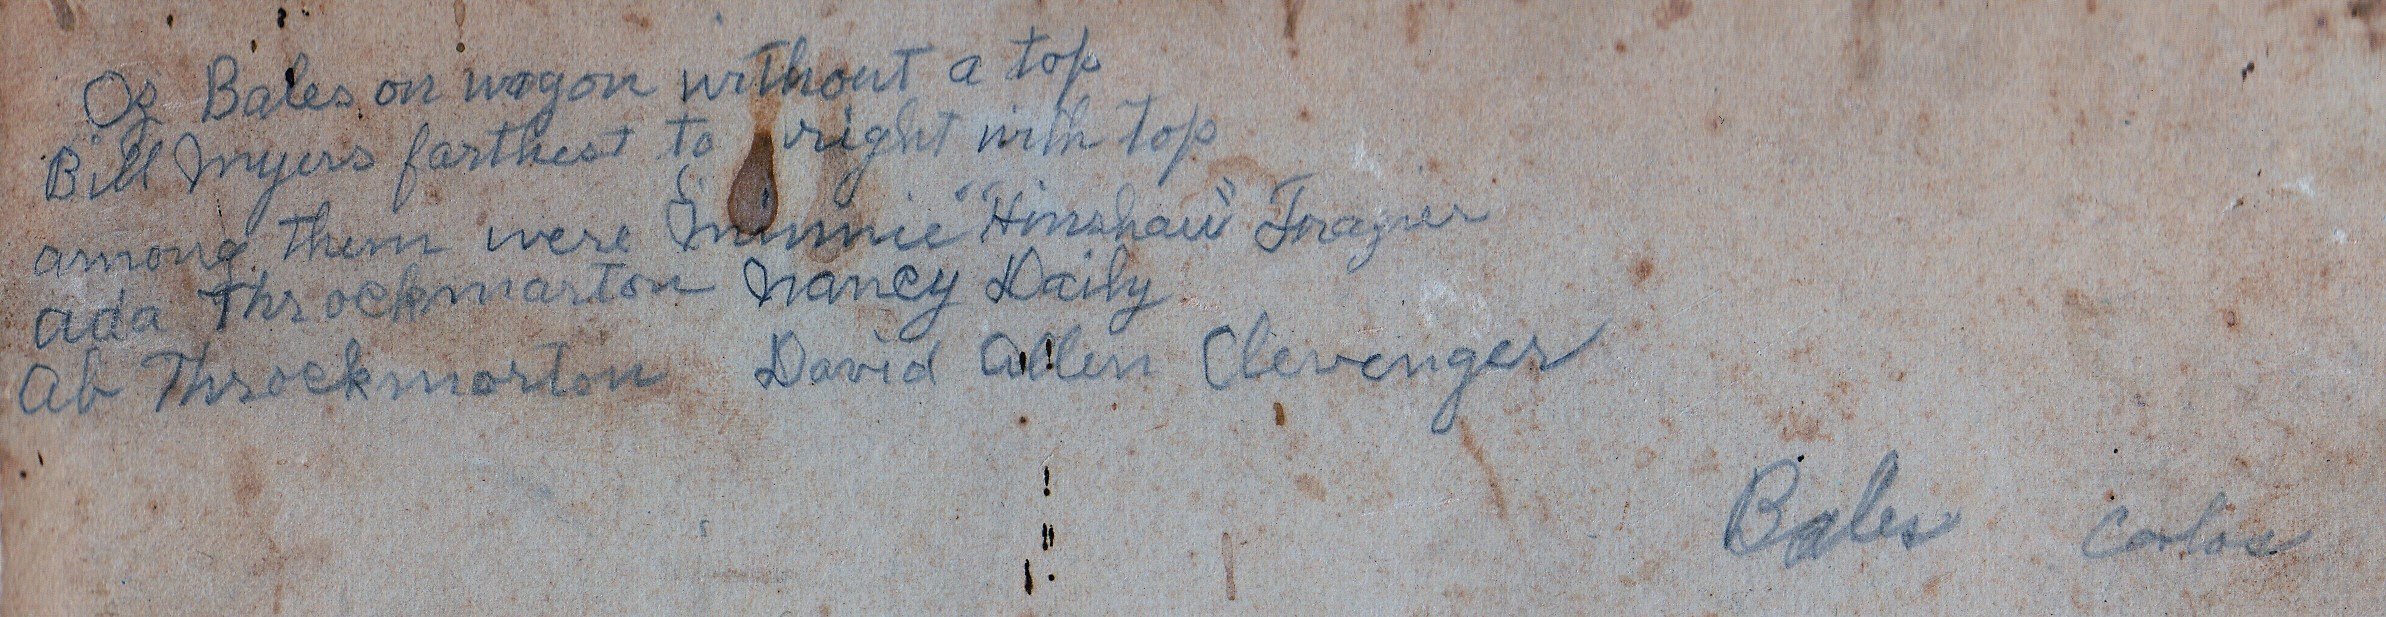 Oz Bales on wagon without a top
Bill Myers farthest to right with top
among them were Minnie "Hinshaw" Frazier
Ada Throckmarton Nancy Daily
Ab Throckmorton David Allen Clevenger
Bales